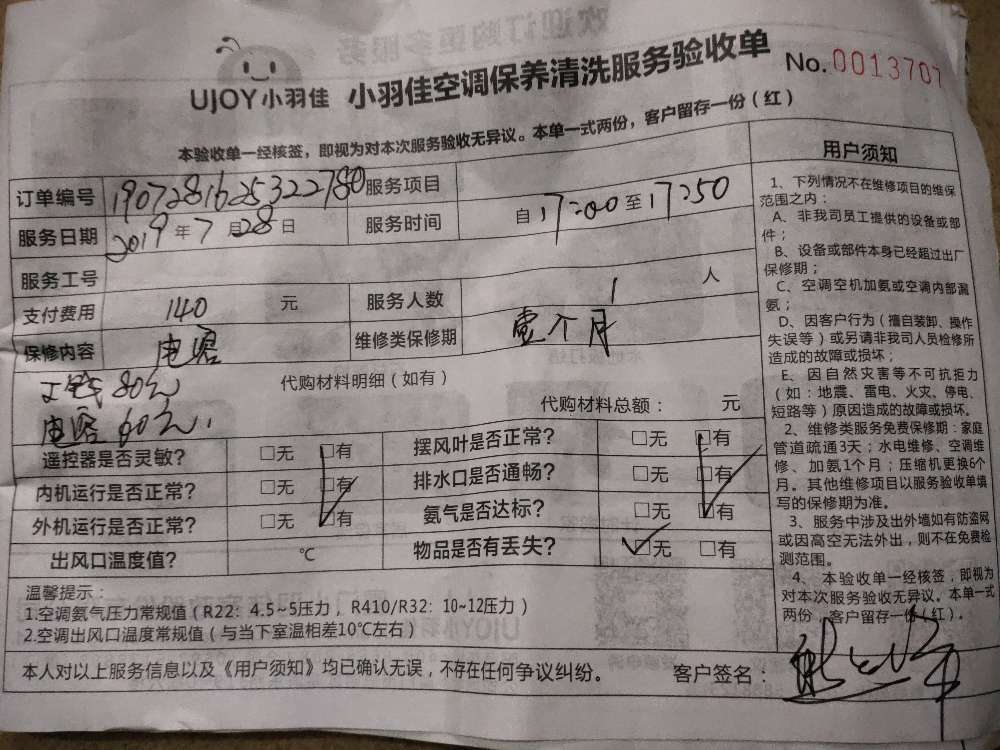 UJOY小羽佳 小羽佳空调保养清洗服务验收单 No.0013707
本验收单一经核签，即视为对本次服务验收无异议。本单一式两份，客户留存一份（红）
订单编号 1907281625322780 服务项目
服务日期 2019年7月28日 服务时间 自17:00至17:50
服务工号
支付费用 140 元 服务人数 1 人
保修内容 电容 维修类保修期 壹个月
工钱80元 代购材料明细（如有）
电容60元 代购材料总额： 元
遥控器是否灵敏? □无 □有 摆风叶是否正常? □无 □有
内机运行是否正常? □无 □有 排水口是否通畅? □无 □有
外机运行是否正常? □无 □有 氨气是否达标? □无 □有
出风口温度值? ℃ 物品是否有丢失? □无 □有
温馨提示：
1.空调氨气压力常规值（R22：4.5~5压力，R410/R32：10~12压力）
2.空调出风口温度常规值（与当下室温相差10℃左右）
本人对以上服务信息以及《用户须知》均已确认无误，不存在任何争议纠纷。 客户签名：
用户须知
1、下列情况不在维修项目的维保
范围之内：
A、非我司员工提供的设备或部
件；
B、设备或部件本身已经超过出厂
保修期；
C、空调空机加氨或空调内部漏
氨；
D、因客户行为（擅自装卸、操作
失误等）或另请非我司人员检修所
造成的故障或损坏；
E、因自然灾害等不可抗拒力
（如：地震、雷电、火灾、停电、
短路等）原因造成的故障或损坏。
2、维修类服务免费保修期：家庭
管道疏通3天；水电维修、空调维
修、加氨1个月；压缩机更换6个
月。其他维修项目以服务验收单填
写的保修期为准。
3、服务中涉及出外墙如有防盗网
或因高空无法外出，则不在免费检
测范围。
4、本验收单一经核签，即视为
对本次服务验收无异议。本单一式
两份，客户留存一份（红）。